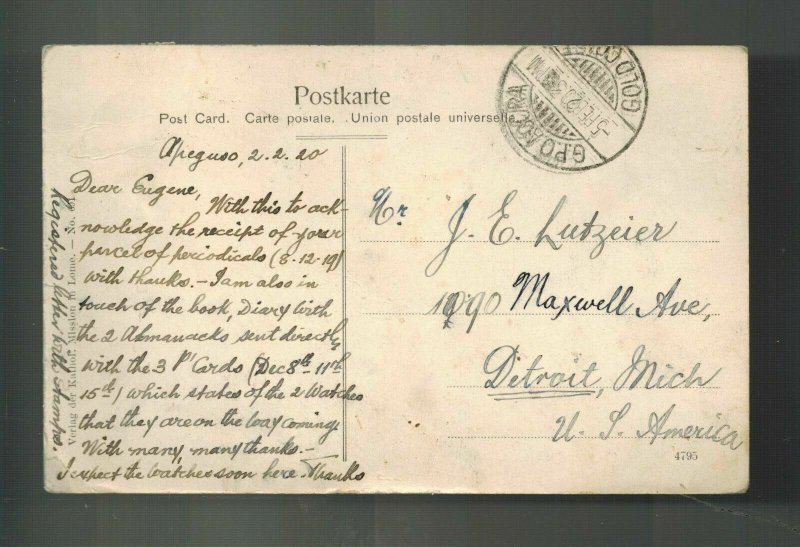 Postkarte
Post Card. Carte postale. Union postale universelle.
G.P.O ACCRA
GOLD COAST
Apeguso, 2.2.20
Dear Eugene,
With this to ack-
nowledge the receipt of your
parcel of periodicals (8-12-19)
with thanks. - I am also in
touch of the book, Diary with
the 2 Almanacks sent directly
with the 3 P Cards (Dec 8th - 11th
15th) which states of the 2 Watches
that they are on the way coming.
With many, many thanks. -
I expect the watches soon here. Thanks
Registered letter with stamps.
Verlag der Kathol. Mission in Lome. - No.
Mr. J. E. Lutzeier
1090 Maxwell Ave,
Detroit, Mich
U. S. America
4795